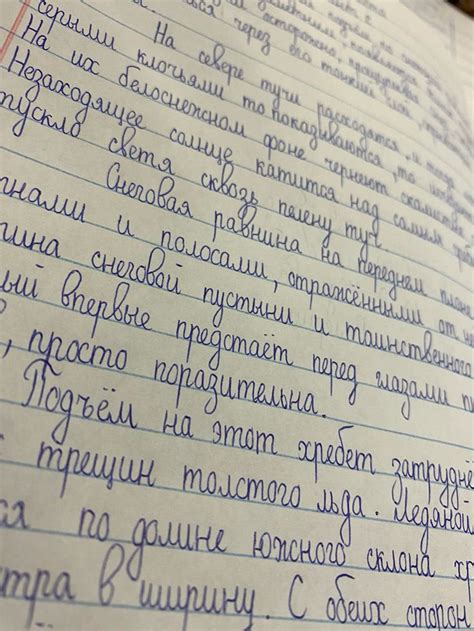 осторожно, прощупывая
через его тонкий слой,
На севере тучи расходятся, и тогда
серыми клочьями то показываются, то исчез
На их белоснежном фоне чернеют скалистые
Незаходящее солнце катится над самым греб
тускло светя сквозь пелену туч.
Снеговая равнина на переднем плане
нами и полосами, отражёнными от не
тина снеговой пустыни и таинственного
ый впервые предстаёт перед глазами
, просто поразительна.
Подъём на этот хребет затруднё
трещин толстого льда. Ледяной
ся по долине южного склона хр
тра в ширину. С обеих сторон